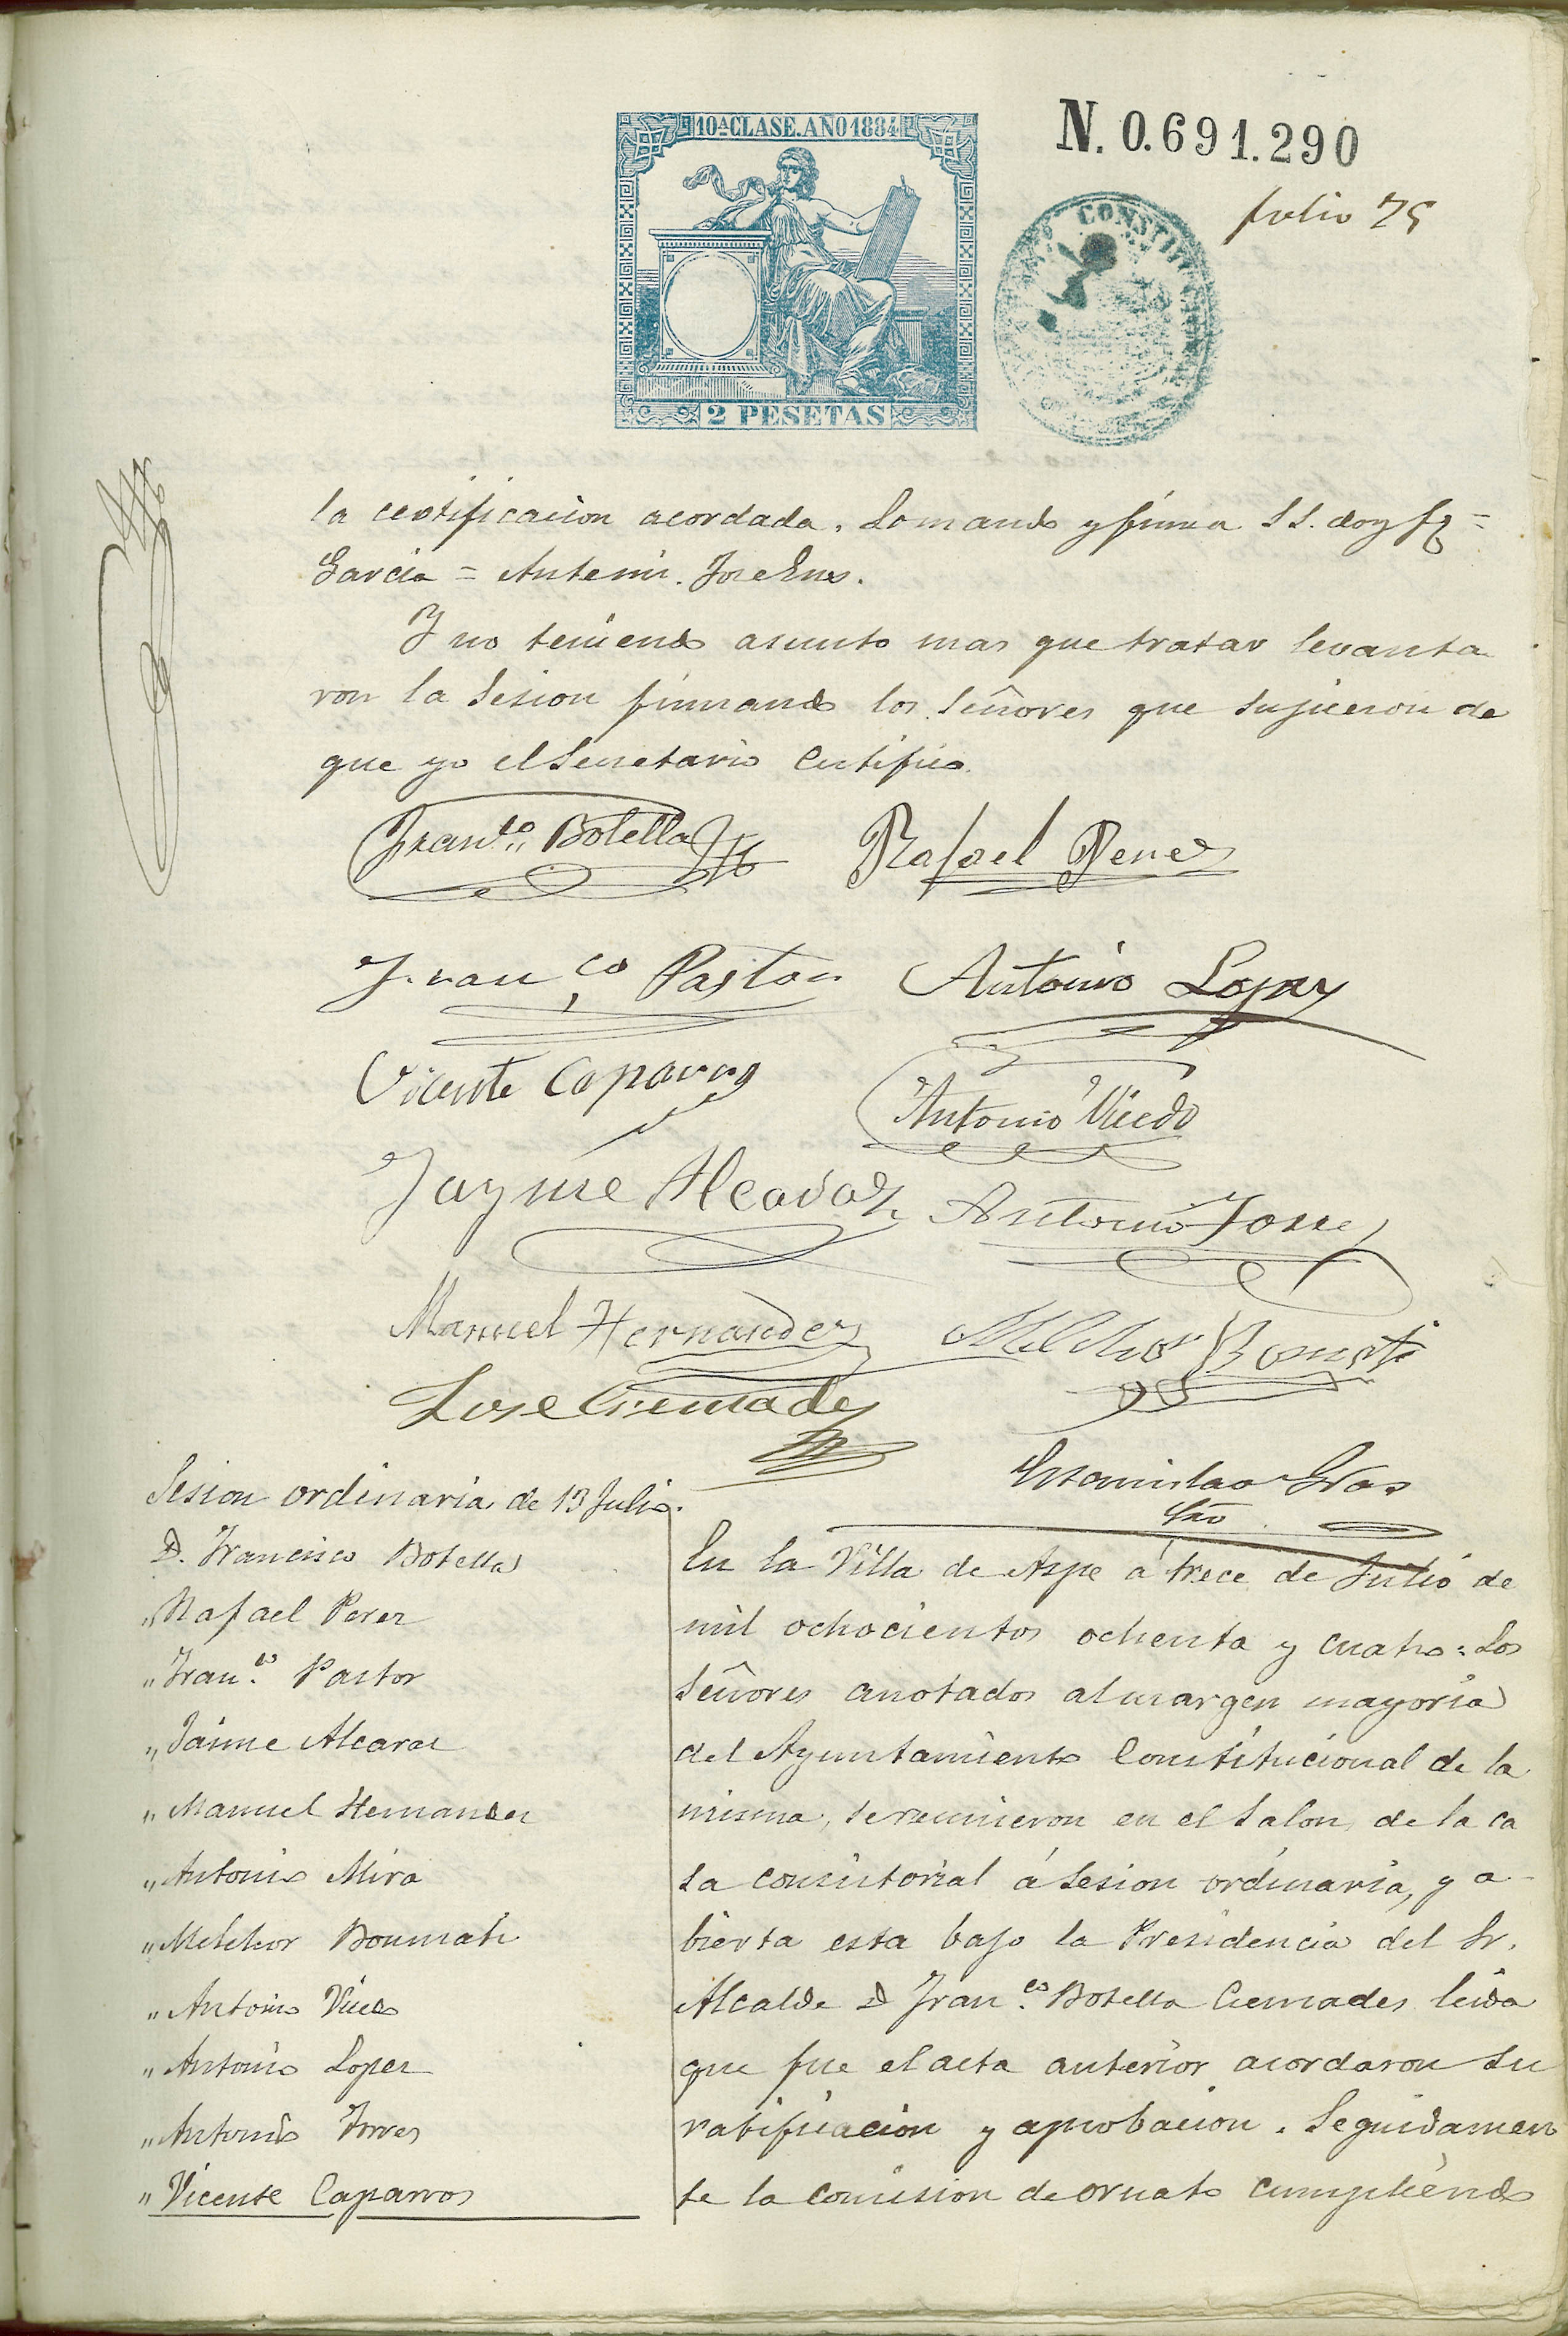 10ª CLASE. AÑO 1884
N. 0.691.290
folio 75
CONSTITU
2 PESETAS
la certificacion acordada. Lo mando y firma S S. doy fé =
Garcia = Antemi. Jose
Y no teniendo asunto mas que tratar levanta
ron la Sesion firmando los Señores que supieron de
que yo el Secretario Certifico.
Fran.co Botella
Rafael Perez
Fran.co Pastor
Antonio Lopez
Vicente Caparros
Antonio Vicedo
Jayme Alcaraz
Antonio Torres
Manuel Hernandez
Melchor Bonmati
Jose Cremades
Estanislao
Srio
Sesion ordinaria de 13 Julio.
D. Francisco Botella
" Rafael Perez
" Fran.co Pastor
" Jaime Alcaraz
" Manuel Hernandez
" Antonio Mira
" Melchor Bonmati
" Antonio Vicedo
" Antonio Lopez
" Antonio Torres
" Vicente Caparros
En la Villa de Aspe á trece de Julio de
mil ochocientos ochenta y cuatro: Los
Señores anotados al margen mayoria
del Ayuntamiento Constitucional de la
misma, se reunieron en el Salon de la ca
sa consistorial á Sesion ordinaria, y a-
bierta esta bajo la Presidencia del Sr.
Alcalde D Fran.co Botella Cremades leida
que fue el acta anterior acordaron su
ratificacion y aprobacion. Seguidamen
te la comision de ornato cumpliendo